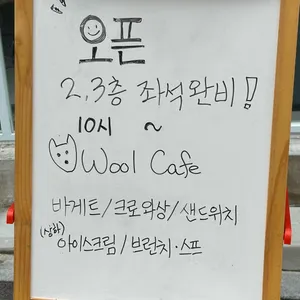 오픈
2,3층 좌석완비!
10시 ~
Wool Cafe
바게트/크로와상/샌드위치
(상하)아이스크림/브런치·스프